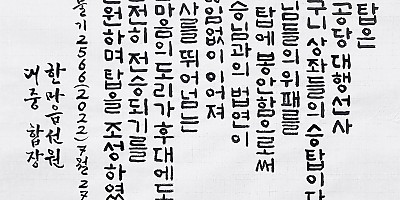 탑은
공당 대행선사
구니 상좌들의 승탑이다
님들의 위패를
탑에 봉안함으로써
승님과의 법연이
없이 이어져
사를 뛰어넘는
마음의 도리가 후대에도
전히 전승되기를
원하며 탑을 조성하였
불기 2566(2022)년 7월 27
한마음선원
대중 합장